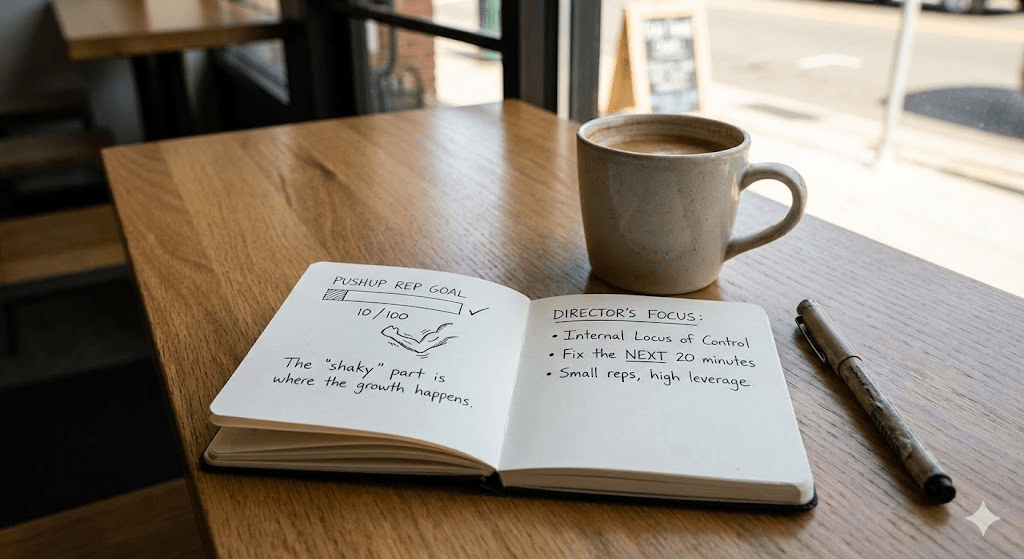 PUSHUP REP GOAL
10/100
The "shaky" part is
where the growth happens.
DIRECTOR'S FOCUS:
• Internal Locus of Control
• Fix the NEXT 20 minutes
• Small reps, high leverage